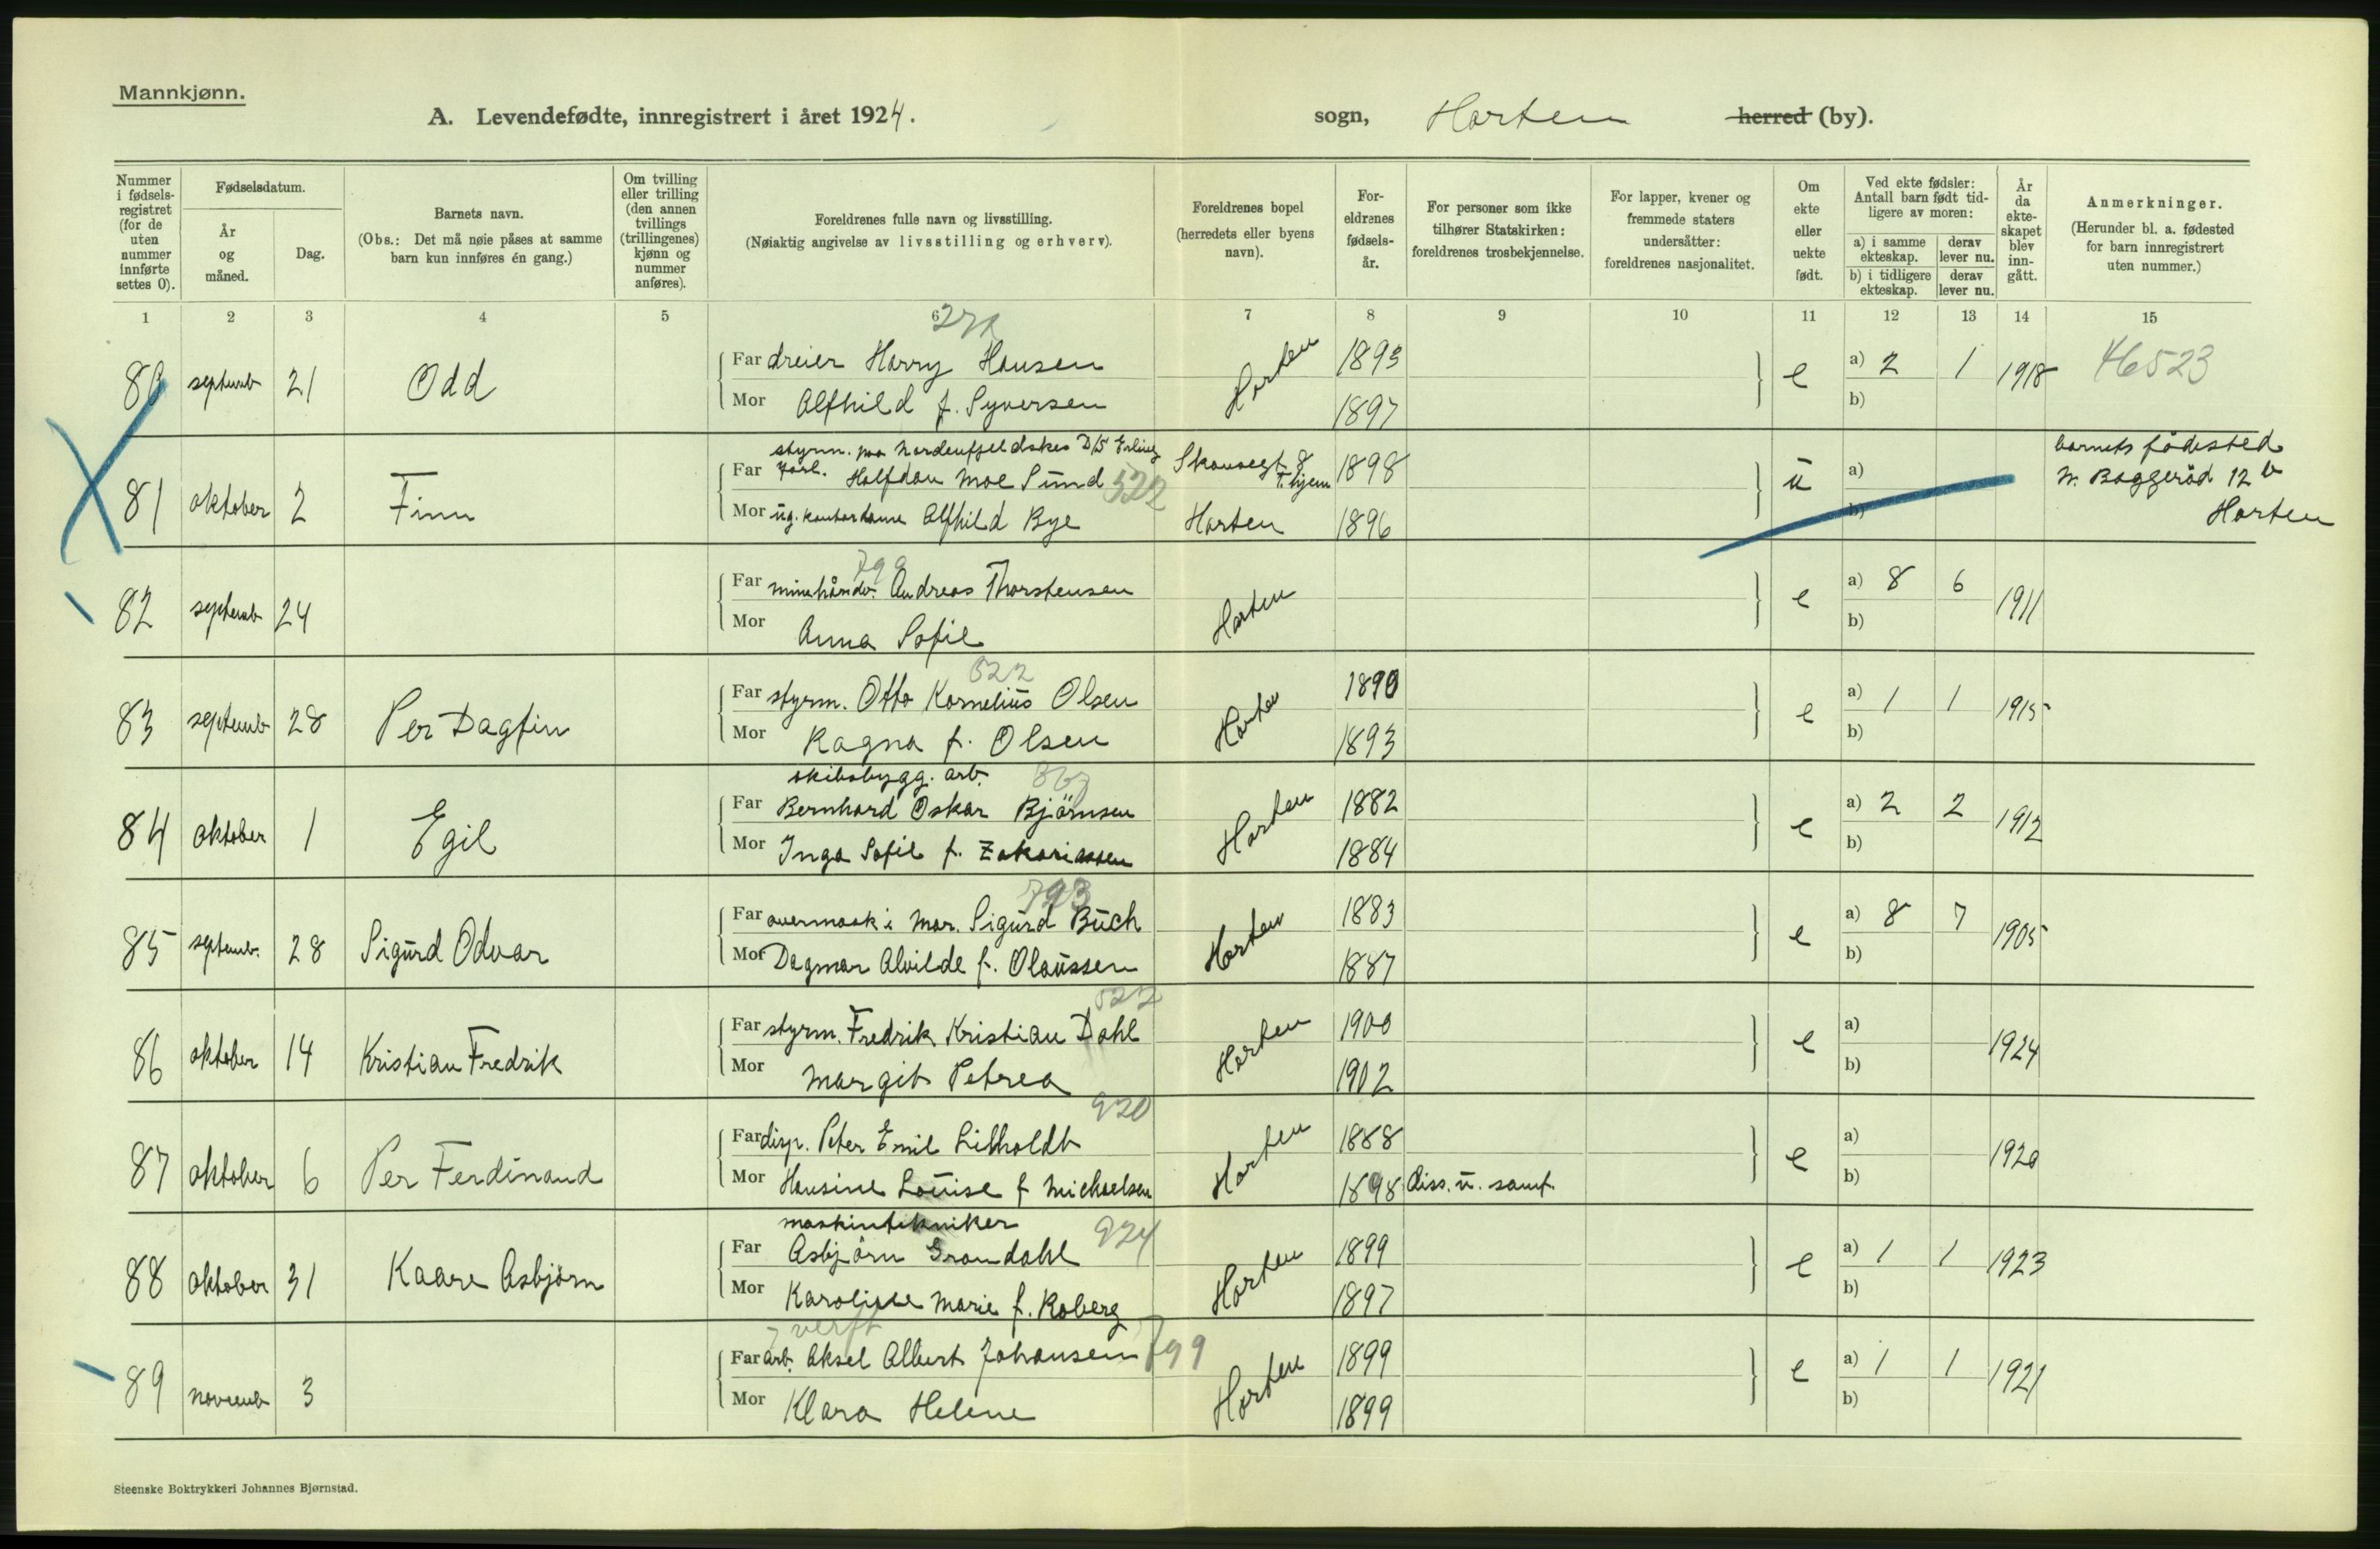 Mannkjønn.
A. Levendefødte, innregistrert i året 1924.
sogn, Horten herred (by).
Nummer i fødsels-registret (for de uten nummer innførte settes 0).
Fødselsdatum.
År og måned.
Dag.
Barnets navn.
(Obs.: Det må nøie påses at samme barn kun innføres én gang.)
Om tvilling eller trilling (den annen tvillings (trillingenes) kjønn og nummer anføres).
Foreldrenes fulle navn og livsstilling.
(Nøiaktig angivelse av livsstilling og erhverv).
Foreldrenes bopel (herredets eller byens navn).
For-eldrenes fødsels-år.
For personer som ikke tilhører Statskirken: foreldrenes trosbekjennelse.
For lapper, kvener og fremmede staters undersåtter: foreldrenes nasjonalitet.
Om ekte eller uekte født.
Ved ekte fødsler: Antall barn født tid-ligere av moren:
a) i samme ekteskap.
derav lever nu.
b) i tidligere ekteskap.
derav lever nu.
År da ekte-skapet blev inn-gått.
Anmerkninger.
(Herunder bl. a. fødested for barn innregistrert uten nummer.)
1 2 3 4 5 6 7 8 9 10 11 12 13 14 15
80 septemb 21 Odd
Far dreier Harry Hansen Horten 1893 e a) 2 1 1918 46523
Mor Alfhild f. Syversen 1897 b)
styrm. paa nordenfjeldskes D/S Erling
81 oktober 2 Finn
Far Jarl. Halfdan Moe Sund 522 Skansegt 8 T.hjem 1898 u a) barnets fødested
Mor ug. kontordame Alfhild Bye Horten 1896 b) N. Baggerød 12 b
Horten
82 septemb 24
Far minehåndv. Andreas Thorstensen Horten e a) 8 6 1911
Mor Anna Sofie b)
522
83 septemb 28 Per Dagfin
Far styrm. Otto Kornelius Olsen Horten 1890 e a) 1 1 1915
Mor Ragna f. Olsen 1893 b)
skibsbygg. arb.
84 oktober 1 Egil
Far Bernhard Oskar Bjørnsen Horten 1882 e a) 2 2 1912
Mor Inga Sofie f. Zakariassen 1884 b)
85 septemb. 28 Sigurd Odvar
Far overmask i Mar. Sigurd Buch Horten 1883 e a) 8 7 1905
Mor Dagmar Alvilde f. Olaussen 1887 b)
522
86 oktober 14 Kristian Fredrik
Far styrm. Fredrik Kristian Dahl Horten 1900 e a) 1924
Mor Margit Petrea 1902 b)
920
87 oktober 6 Per Ferdinand
Far disp. Peter Emil Litholdt Horten 1888 e a) 1920
Mor Hansine Louise f Michaelsen 1898 diss. u. samf. b)
maskintekniker 924
88 oktober 31 Kaare Asbjørn
Far Asbjørn Grandahl Horten 1899 e a) 1 1 1923
Mor Karoline Marie f. Roberg 1897 b)
verft
89 novemb 3
Far arb. Aksel Albert Johansen 799 Horten 1899 e a) 1 1 1921
Mor Klara Helene 1899 b)
Steenske Boktrykkeri Johannes Bjørnstad.